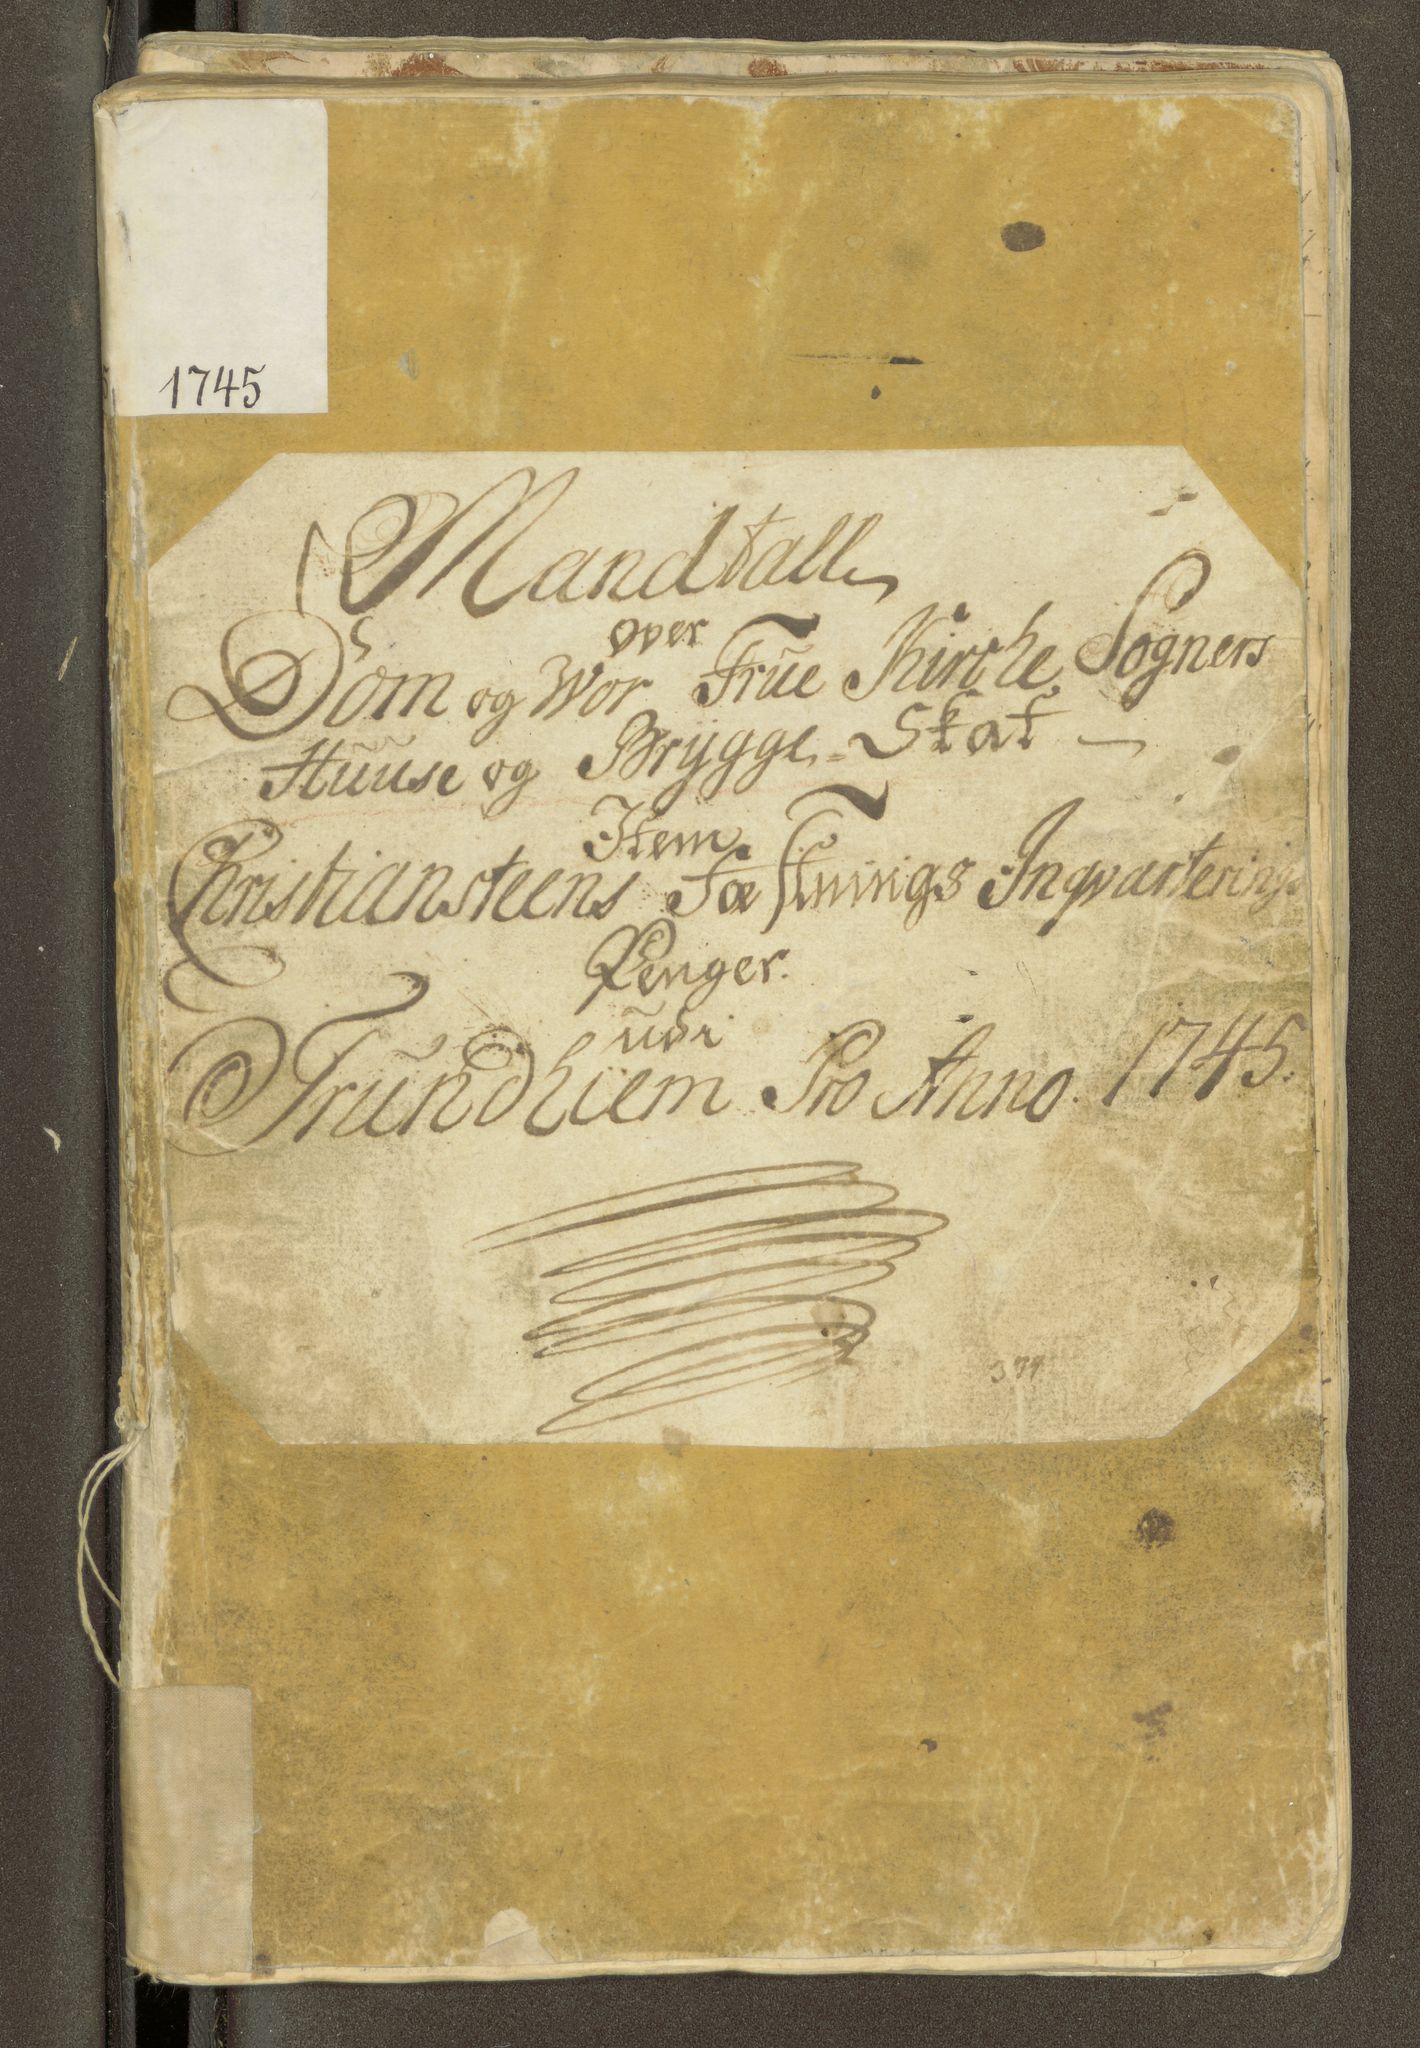 1745
Mandtall
over
Dom og Wor Früe Kirche Sogners
Huuse og Brygge-Skat
Item
Christiansteens Fæstnings Inqvarterings
Penger.
udi
Trundhiem Pro Anno. 1745.